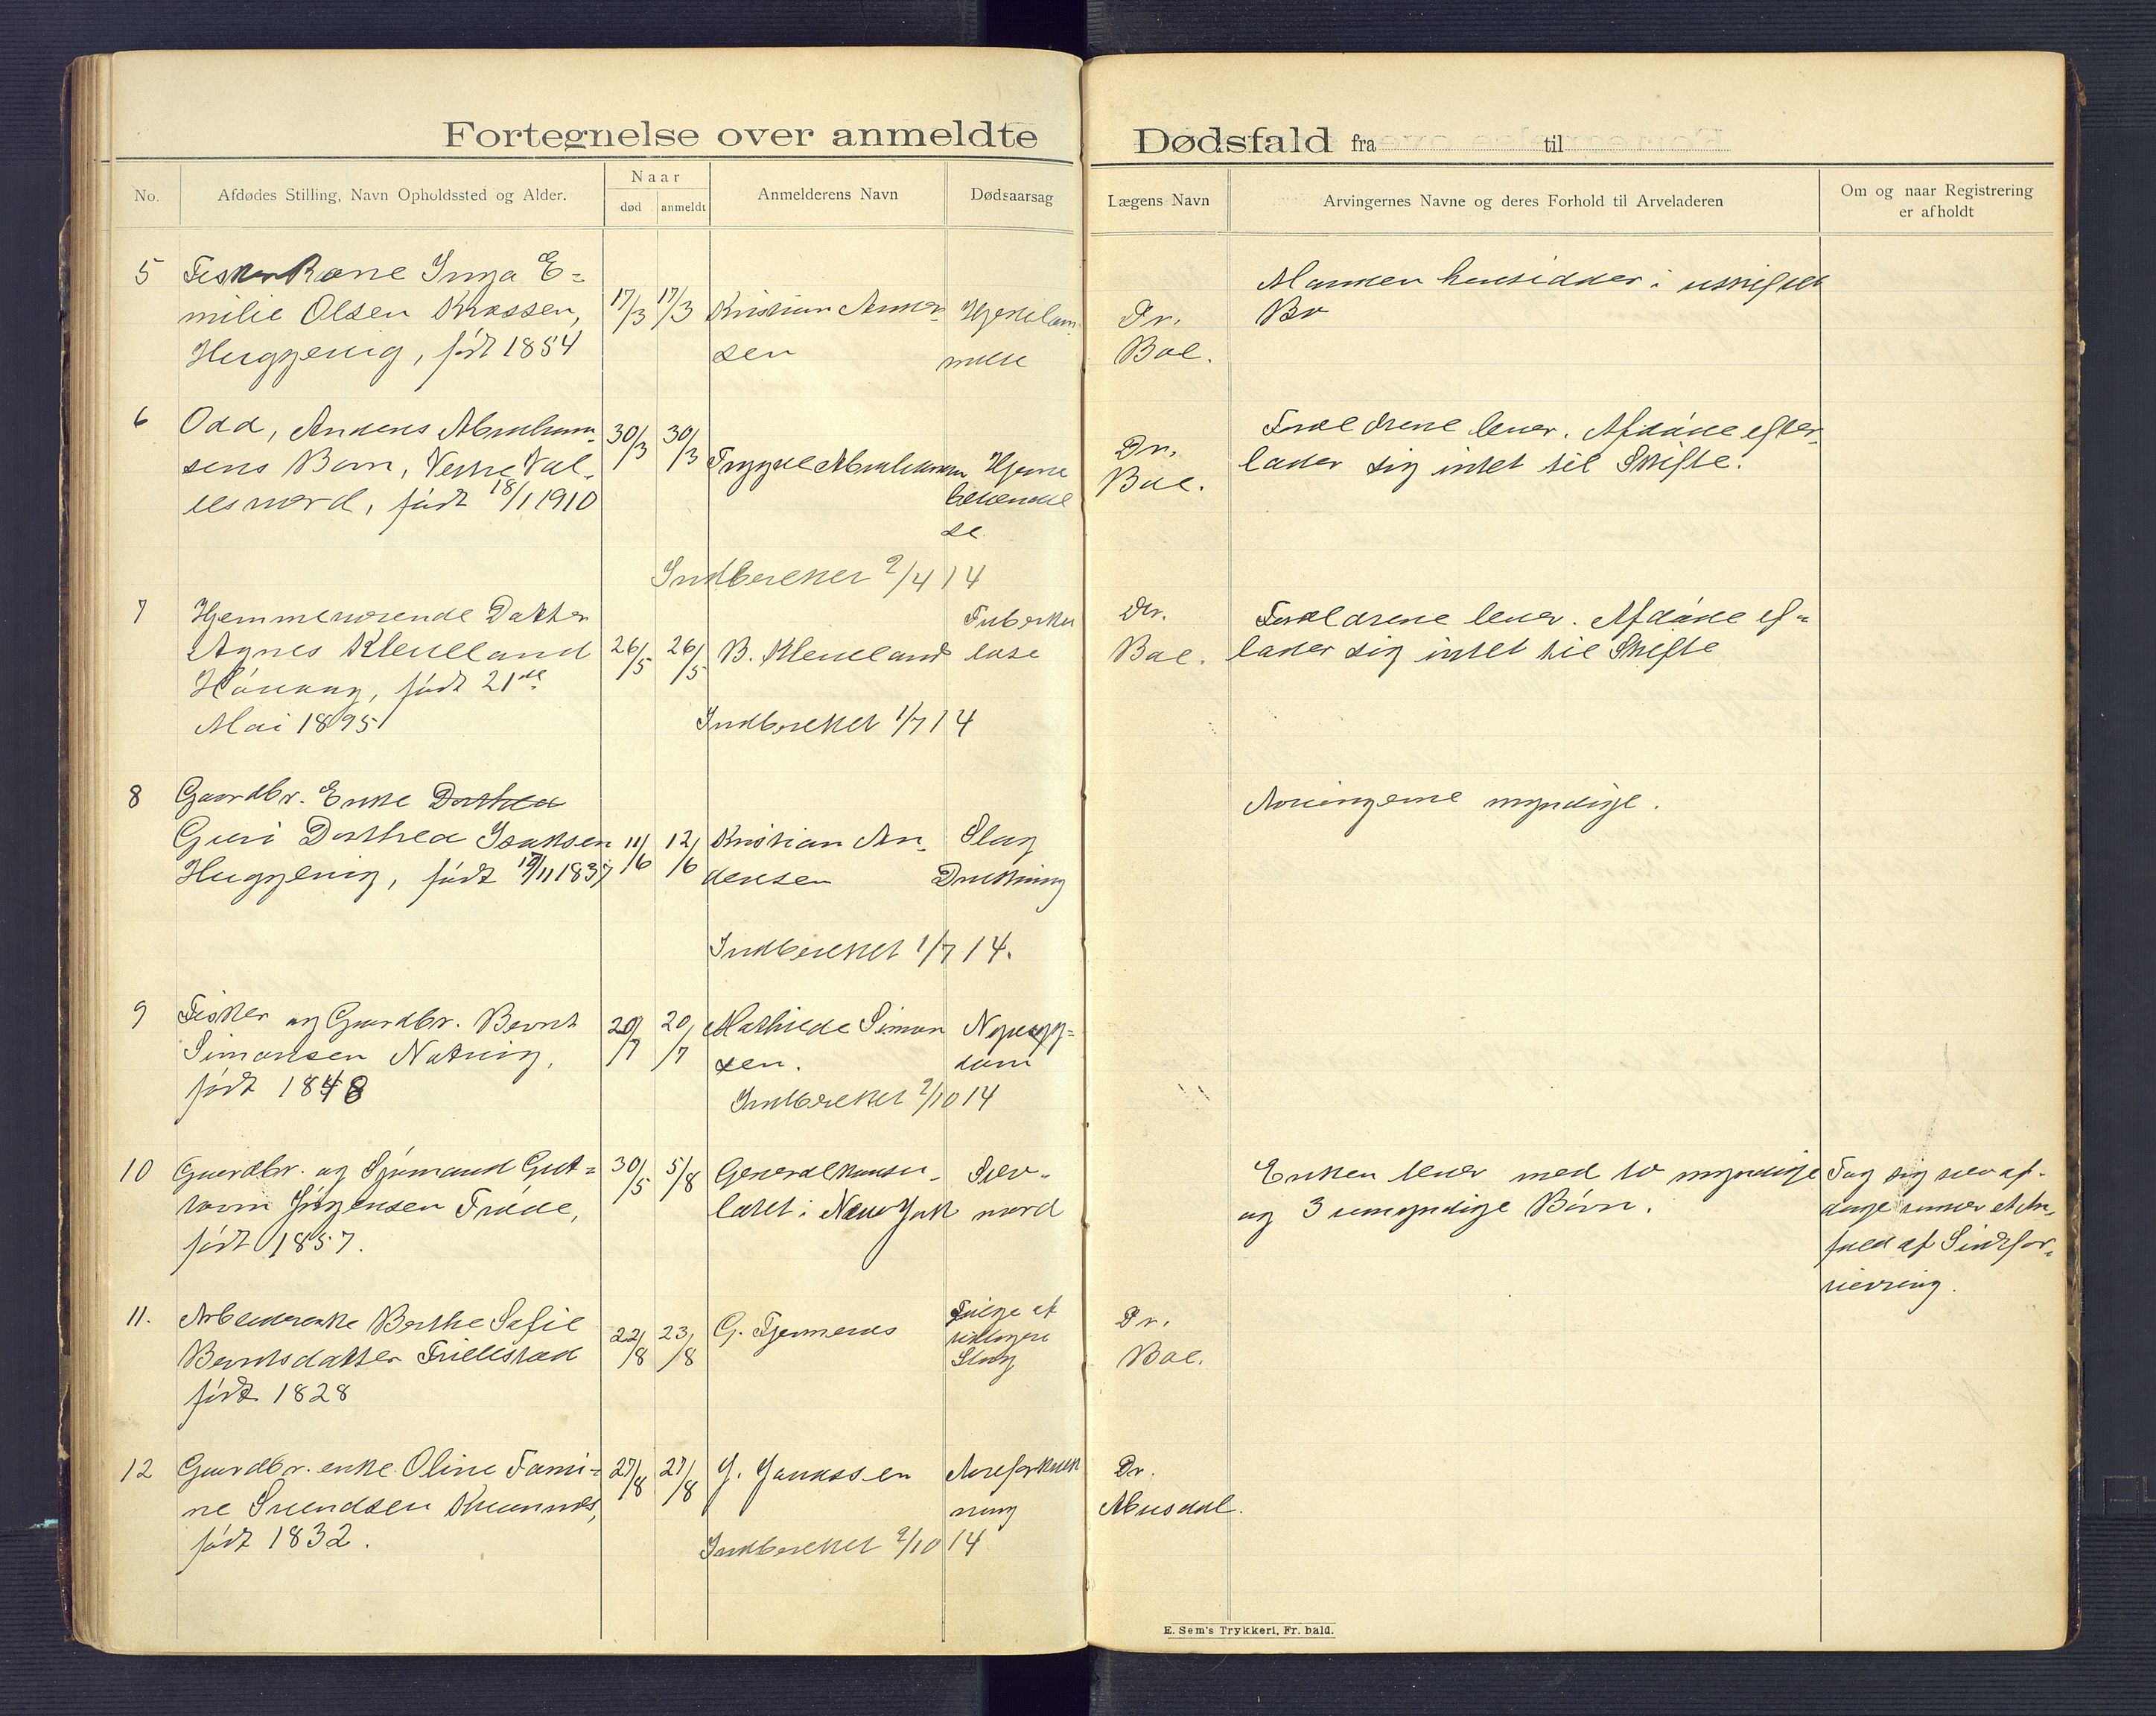 Fortegnelse over anmeldte Dødsfald fra til
No.
Afdødes Stilling, Navn Opholdssted og Alder.
Naar
død
anmeldt
Anmelderens Navn
Dødsaarsag
Lægens Navn
Arvingernes Navne og deres Forhold til Arveladeren
Om og naar Registrering
er afholdt
5
Fiskerkone Inga E=
milie Olsen
født 1854
17/3
17/3
Kristian
sen
Hjertelam
melse
Dr.
Bae.
Manden hensidder i uskiftet
Bo
6
Odd, Anders Abraham-
sens Barn, Vestre Val-
født 18/1 1910
30/3
30/3
Trygve Abrahamsen
Hjerne
betændel
se
Dr.
Bae.
Forældrene lever. Afdøde efter-
lader sig intet til Skifte.
Indberettet 2/4 14
7
Hjemmeværende Datter
Agnes Kleveland
født 21de
Mai 1895
26/5
26/5
B. Kleveland
Tuberku
lose
Dr.
Bae.
Forældrene lever. Afdøde ef=
lader sig intet til Skifte
Indberettet 1/7 14
8
Gaardbr. Enke Dorthea
Guri Dorthea Isaksen
født 19/11 1837
11/6
12/6
Kristian An-
dersen
Slag
Arvingerne myndige.
Indberettet 1/7 14.
9
Fisker og Gaardbr. Bernt
Simonsen Natvig,
født 1848
20/7
20/7
Mathilde Simon
sen.
dom
Indberettet 2/10 14
10
Gaardbr. og Sjømand Gut=
torm Jørgensen Frøde,
født 1857.
30/5
5/8
Generalkonsu-
latet i New York
Selv-
mord
Enken lever med to myndige
og 3 umyndige Børn.
Tog sig selv af-
dage under et An-
fald af Sindsfor-
virring.
11.
Arbeiderenke Berthe Sofie
Berntsdatter Frillestad
født 1828
22/8
23/8
G. Tjomenes
Følge af
tidligere
Slag
Dr.
Bae.
12
Gaardbr. enke Oline Tomi=
ne Svendsen
født 1832.
27/8
27/8
J. Janassen
Aareforkalk
ning
Dr.
Abusdal.
Indberettet 2/10 14
E. Sem's Trykkeri, Fr. hald.